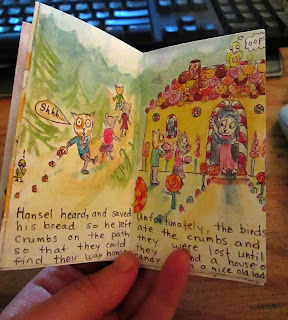 Shhh
Hansel heard, and saved
his bread so he left
crumbs on the path
so that they could
find their way home.
OOP
Unfortunately, the birds
ate the crumbs and
they were lost until
they found a house of
candy a nice old lad